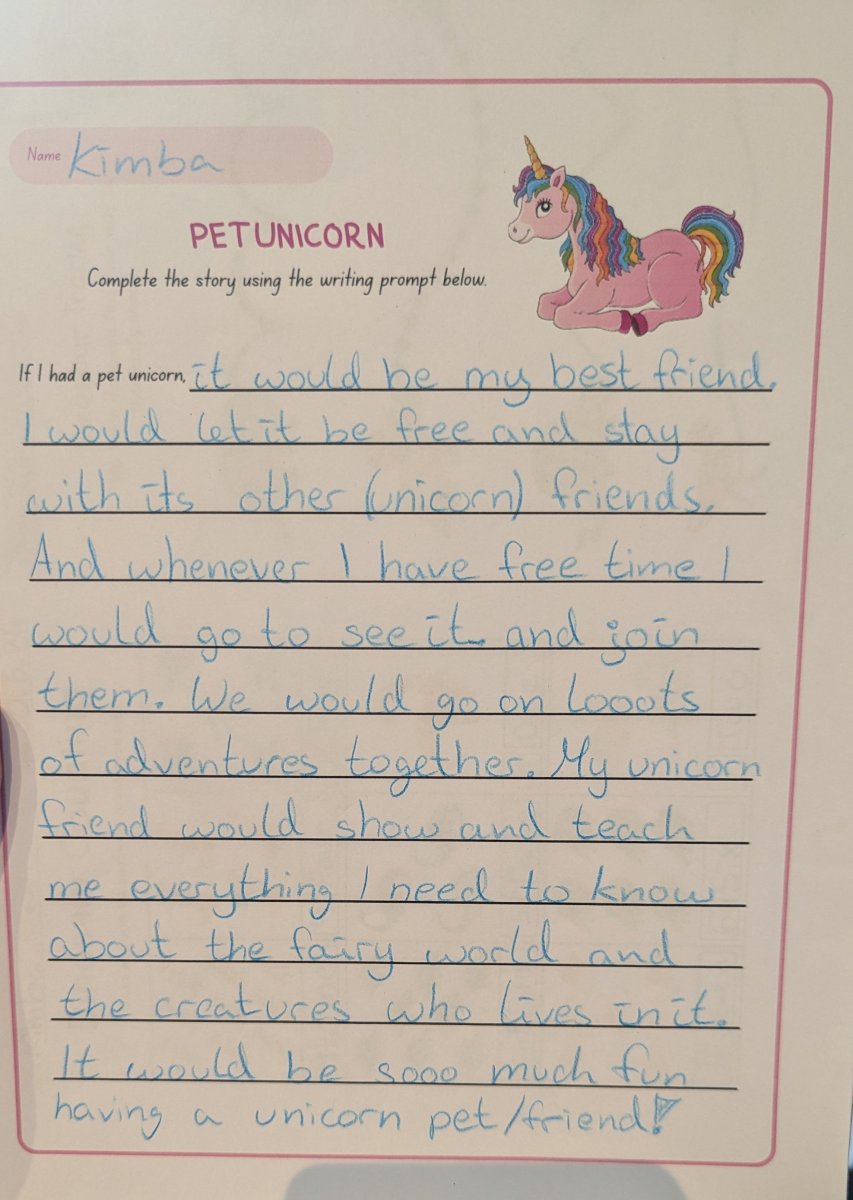 Name Kimba
PET UNICORN
Complete the story using the writing prompt below.
If I had a pet unicorn, it would be my best friend.
I would let it be free and stay
with its other (unicorn) friends.
And whenever I have free time I
would go to see it and join
them. We would go on looots
of adventures together. My unicorn
friend would show and teach
me everything I need to know
about the fairy world and
the creatures who lives in it.
It would be sooo much fun
having a unicorn pet/friend!